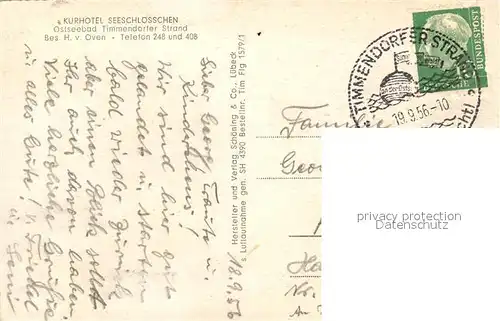 KURHOTEL SEESCHLÖSSCHEN
Ostseebad Timmendorfer Strand
Bes. H. v. Oven • Telefon 248 und 408
18.9.56
Lieber Georg, Traute u.
Kinderlein!
Wir sind hier gut
gelandet u. starten
bald wieder zurück
aber einen Gruß sollt
Ihr auch davon haben.
Viele herzliche Grüße
u. alles Gute!
Hersteller und Verlag Schöning & Co., Lübeck
s Luftaufnahme gen. SH 4390 Bestellnr. Tim Flg 1579/1
TIMMENDORFER STRAND
19.9.56.-10
DEUTSCHE
BUNDESPOST
Familie
Geor
Ha
privacy protection
Datenschutz